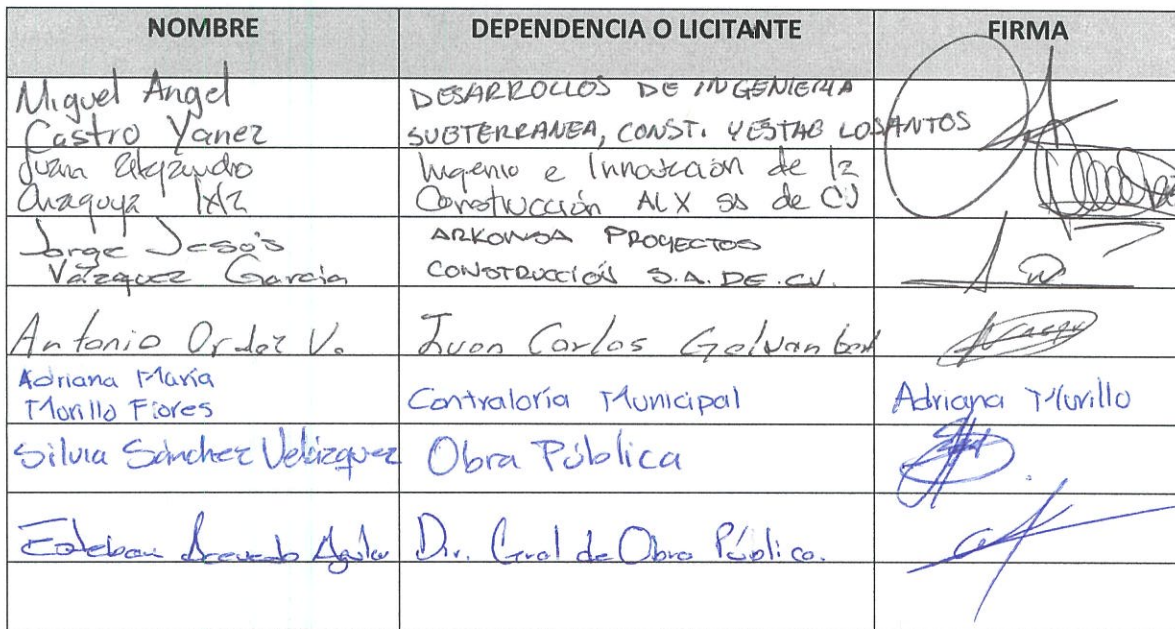 NOMBRE DEPENDENCIA O LICITANTE FIRMA
Miguel Angel DESARROLLOS DE INGENIERIA
Castro Yanez SUBTERRANEA, CONST. Y ESTAB LOSANTOS
Juan Alejandro Ingenio e Innovación de la
Anzaguya Construcción ALX sa de CV
Jorge Jesús ARKONSA PROYECTOS
Vázquez García CONSTRUCCIÓN S.A. DE .CV.
Antonio Ordaz V. Juan Carlos Galvan
Adriana María
Morillo Flores Contraloría Municipal Adriana Murillo
Silvia Sánchez Velázquez Obra Pública
Esteban Acevedo Aguilar Dir. Gral de Obra Pública.